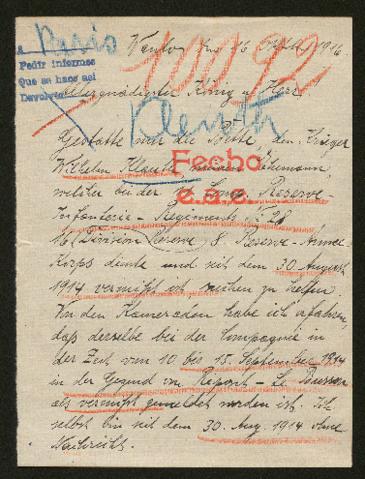 a Paris
Pedir informes
Que se hace aci
Devolver
den 16 1916
10092
Allergnädigster König u Herr
Klauth
Gestatte mir die Bitte, den Krieger
Wilhelm Klauth, meinen Ehemann,
welcher bei der Comp. Reserve-
Fecho
e.a.e.
Infanterie - Regiments Nr 28
16 Division Reserve 8. Reserve-Armee
Korps diente und seit dem 30 August
1914 vermißt ist suchen zu helfen.
Von den Kameraden habe ich erfahren,
daß derselbe bei der Compagnie in
der Zeit vom 10 bis 15. September 1914
in der Gegend von Ripont - Le
als vermißt gemeldet worden ist. Ich
selbst bin seit dem 30 Aug. 1914 ohne
Nachricht.